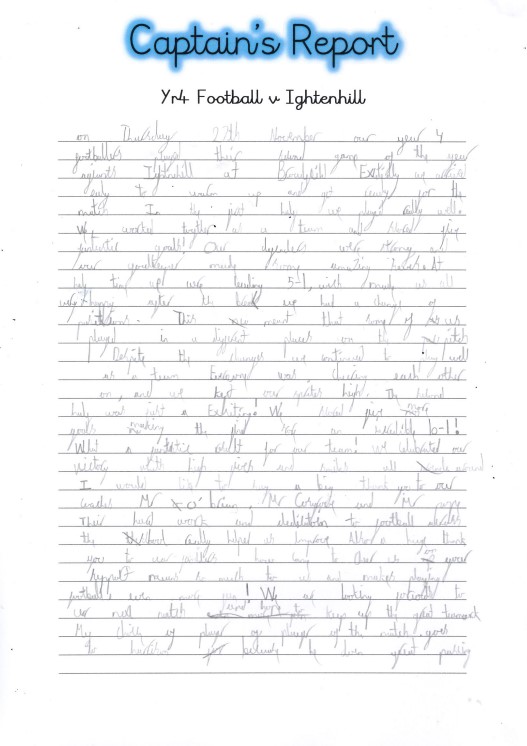 Captain's Report
Yr4 Football v Ightenhill
on Thursday 27th November our year 4
footballers played their second game of the year
against Ightenhill at Excitedly we arrived
early to warm up and get ready for the
match. In the first half we played really well.
We worked together as a team and scored five
fantastic goals! Our defenders were strong and
our goalkeeper made some amazing saves. At
half time up were leading 5-1, wich made us all
very happy after the break we had a change of
positions. This meant that some of us
played in a different places on the pitch
Despite the changes we continued to play well
as a team Everyone was cheering each other
on, and we kept our spirites high. The second
half was just a Exciting! We scored more
goals making the final an incredible 6-1!
What a fantastic result for our team! We celebrated our
victory with high fives and smiles all
I would like to say a big thank you to our
coaches Mr o'brien, Mr and Mr
Their hard work and deditation to football across
the school really helped us improve Also a huge thank
you to our for to cheer us on your
support means so much to us and makes playing
football even more fun! We are looking forward to
our next match and hope to keep up the great teamwork
My choice of player of the match goes
to harrison for he great passing